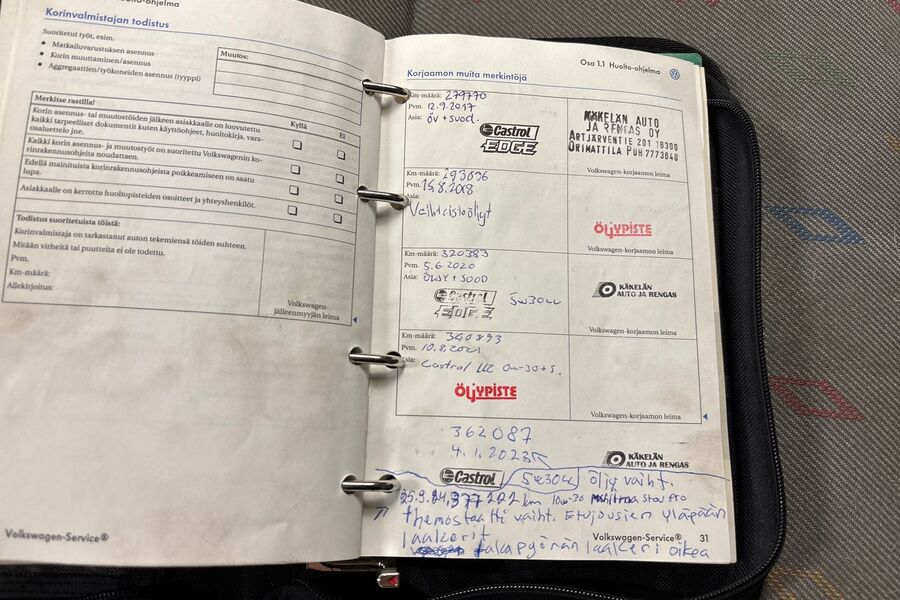 Huolto-ohjelma
Korinvalmistajan todistus
Suoritetut työt, esim.
• Matkailuvarustuksen asennus
• Korin muuttaminen/asennus
• Aggregaattien/työkoneiden asennus (tyyppi)
Muutos:
Merkitse rastilla!
Kyllä
Ei
Korin asennus- ja muutostöiden jälkeen asiakkaalle on luovutettu
kaikki tarpeelliset dokumentit kuten käyttöohjeet, huoltokirja, vara-
osaluettelo jne.
Kaikki korin asennus- ja muutostyöt on suoritettu Volkswagenin ko-
rinrakennusohjeita noudattaen.
Edellä mainituista korinrakennusohjeista poikkeamiseen on saatu
lupa.
Asiakkaalle on kerrottu huoltopisteiden osoitteet ja yhteyshenkilöt.
Todistus suoritetuista töistä:
Korinvalmistaja on tarkastanut auton tekemiensä töiden suhteen.
Mitään virheitä tai puutteita ei ole todettu.
Pvm.
Km-määrä:
Allekirjoitus:
Volkswagen-
jälleenmyyjän leima
Volkswagen-Service®
Osa 1.1 Huolto-ohjelma
Korjaamon muita merkintöjä
Km-määrä: 279770
Pvm. 12.9.2017
Asia: öv + suod.
Castrol
EDGE
KÄKELÄN AUTO
JA RENGAS OY
ARTJÄRVENTIE 201 16300
ORIMATTILA PUH 7773640
Volkswagen-korjaamon leima
Km-määrä: 293036
Pvm. 15.8.2018
Asia:
Vaihteistoöljyt
ÖLJYPISTE
Volkswagen-korjaamon leima
Km-määrä: 320383
Pvm. 5.6.2020
Asia: ÖLJY + SUOD
Castrol
EDGE
5w30LL
KÄKELÄN
AUTO JA RENGAS
Volkswagen-korjaamon leima
Km-määrä: 340893
Pvm. 10.8.2021
Asia:
Castrol LL 0w-30+S.
ÖLJYPISTE
Volkswagen-korjaamon leima
362087
4.1.2023
KÄKELÄN
AUTO JA RENGAS
Castrol 5w30LL öljy vaiht.
25.9.24, 377202 km 10w-30
themostaatti vaiht. Etujousien yläpään
laakerit
takapyörän laakeri oikea
Volkswagen-Service® 31